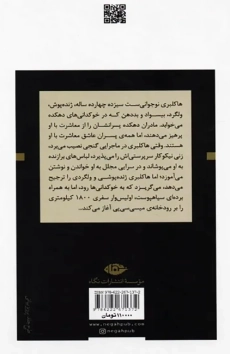 هاکلبری نوجوانی‌ست سیزده چهارده ساله، ژنده‌پوش،
ولگرد، بیسواد و بددهن که در خوکدانی‌های دهکده
می‌خوابد. مادران دهکده پسرانشان را از معاشرت با او
پرهیز می‌دهند، اما همه‌ی پسران عاشق معاشرت با او
هستند. وقتی هاکلبری در ماجرایی گنجی نصیب می‌برد،
زنی نیکوکار سرپرستی‌اش را می‌پذیرد، لباس‌های برازنده
به او می‌پوشاند و در سرایی مجلل به او خواندن و نوشتن
می‌آموزد؛ اما هاکلبری ژنده‌پوشی و ولگردی را ترجیح
می‌دهد، می‌گریزد که به خوکدانی‌ها رود، اما به همراه
برده‌ای سیاهپوست، اولیس‌وار سفری ۱۸۰۰ کیلومتری
را بر رودخانه‌ی می‌سی‌سی‌پی آغاز می‌کند.
مؤسسه انتشارات نگاه
۱۱۰۰۰۰ تومان
negahpub.com
negahpub